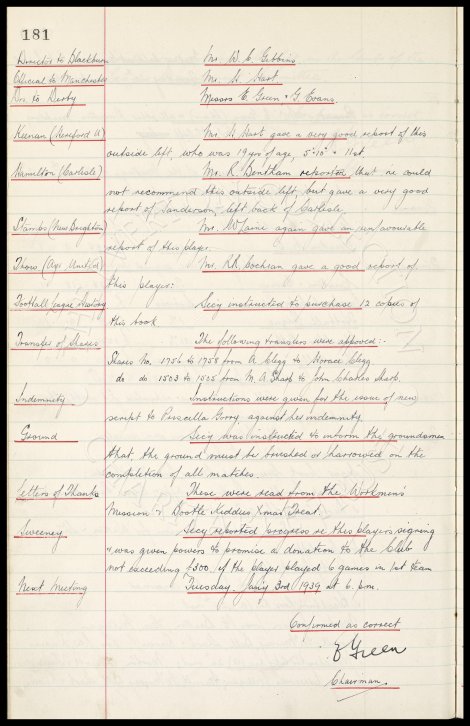 181
Director to Blackburn Mr. W. C. Gibbins
Official to Manchester Mr. H. Hart
Drs. to Derby Messrs E. Green & G. Evans.
Keenan (Hereford U) Mr. H Hart gave a very good report of this
outside left, who was 19 yrs of age, 5'10" & 11 st.
Hamilton (Carlisle) Mr. R. Bentham reported that he could
not recommend this outside left but gave a very good
report of Sanderson, left back of Carlisle.
Stamps (New Brighton) Mr. again gave an unfavourable
report of this player.
(Ayr United) Mr. RR Cochran gave a good report of
this player:
Football League History Secy instructed to purchase 12 copies of
this book
Transfer of Shares The following transfers were approved:-
Shares No. 1756 to 1758 from A. Clegg to Horace Clegg
do do 1503 to 1505 from M. A. Sharb to John Charles Sharb.
Indemnity Instructions were given for the issue of new
script to Priscilla Gorry against her indemnity.
Ground Secy was instructed to inform the groundsman
that the ground must be brushed or harrowed on the
completion of all matches.
Letters of Thanks These were read from the Workmen's
Mission & Bootle Kiddies Xmas Treat.
Sweeney Secy reported progress re this players signing
& was given powers to promise a donation to the Club
not exceeding £300, if the player played 6 games in 1st team
Next Meeting Tuesday. Jany 3rd 1939 at 6. p.m.
Confirmed as correct
E Green
Chairman.